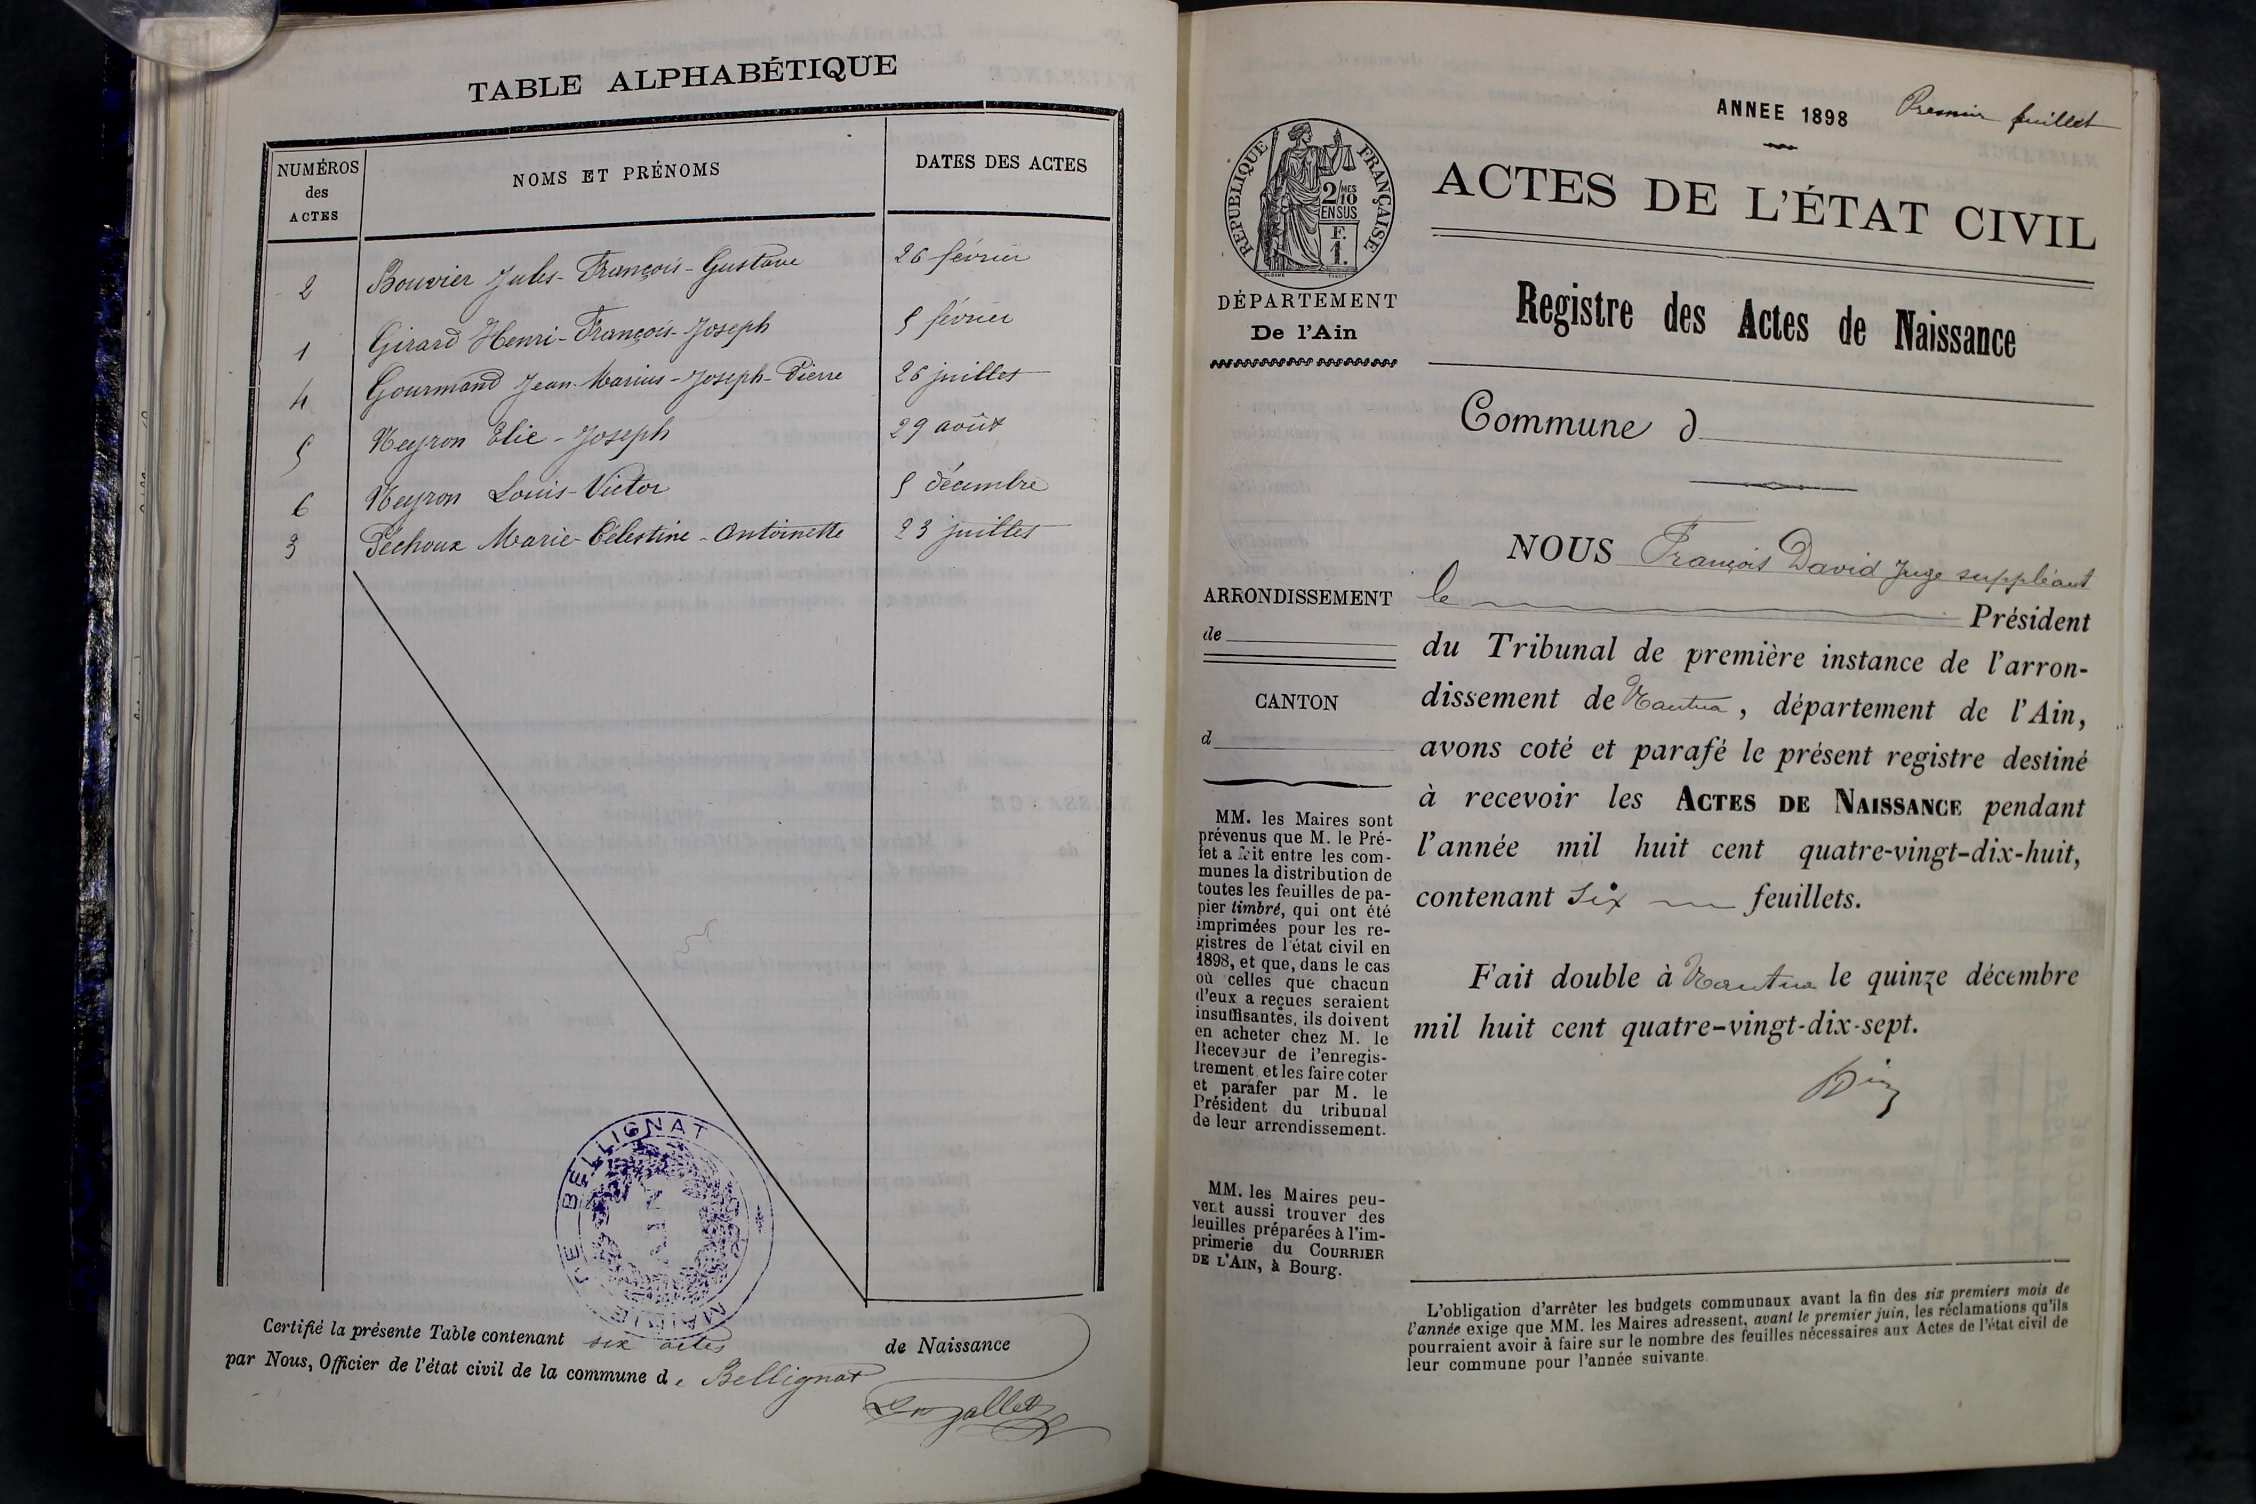 TABLE ALPHABÉTIQUE
NUMÉROS
des
ACTES
NOMS ET PRÉNOMS
DATES DES ACTES
2 Bouvier Jules-François-Gustave 26 février
1 Girard Henri-François-Joseph 5 février
4 Gourmand Jean-Marius-Joseph-Pierre 26 juillet
5 Neyron Elie-Joseph 29 août
6 Neyron Louis-Victor 5 décembre
3 Péchoux Marie-Célestine-Antoinette 23 juillet
MAIRIE DE BELLIGNAT
AIN
Certifié la présente Table contenant six actes de Naissance
par Nous, Officier de l'état civil de la commune de Bellignat
ANNEE 1898
Premier feuillet
RÉPUBLIQUE FRANÇAISE
2/10 MES
EN SUS
F.
1.
DÉPARTEMENT
De l'Ain
ACTES DE L'ÉTAT CIVIL
Registre des Actes de Naissance
Commune d
ARRONDISSEMENT
de
CANTON
d
MM. les Maires sont
prévenus que M. le Pré-
fet a fait entre les com-
munes la distribution de
toutes les feuilles de pa-
pier timbré, qui ont été
imprimées pour les re-
gistres de l'état civil en
1898, et que, dans le cas
où celles que chacun
d'eux a reçues seraient
insuffisantes, ils doivent
en acheter chez M. le
Receveur de l'enregis-
trement et les faire coter
et parafer par M. le
Président du tribunal
de leur arrondissement.
MM. les Maires peu-
vent aussi trouver des
feuilles préparées à l'im-
primerie du COURRIER
DE L'AIN, à Bourg.
NOUS François David Juge suppléant
le Président
du Tribunal de première instance de l'arron-
dissement de Nantua, département de l'Ain,
avons coté et parafé le présent registre destiné
à recevoir les ACTES DE NAISSANCE pendant
l'année mil huit cent quatre-vingt-dix-huit,
contenant six feuillets.
Fait double à Nantua le quinze décembre
mil huit cent quatre-vingt-dix-sept.
L'obligation d'arrêter les budgets communaux avant la fin des six premiers mois de
l'année exige que MM. les Maires adressent, avant le premier juin, les réclamations qu'ils
pourraient avoir à faire sur le nombre des feuilles nécessaires aux Actes de l'état civil de
leur commune pour l'année suivante.